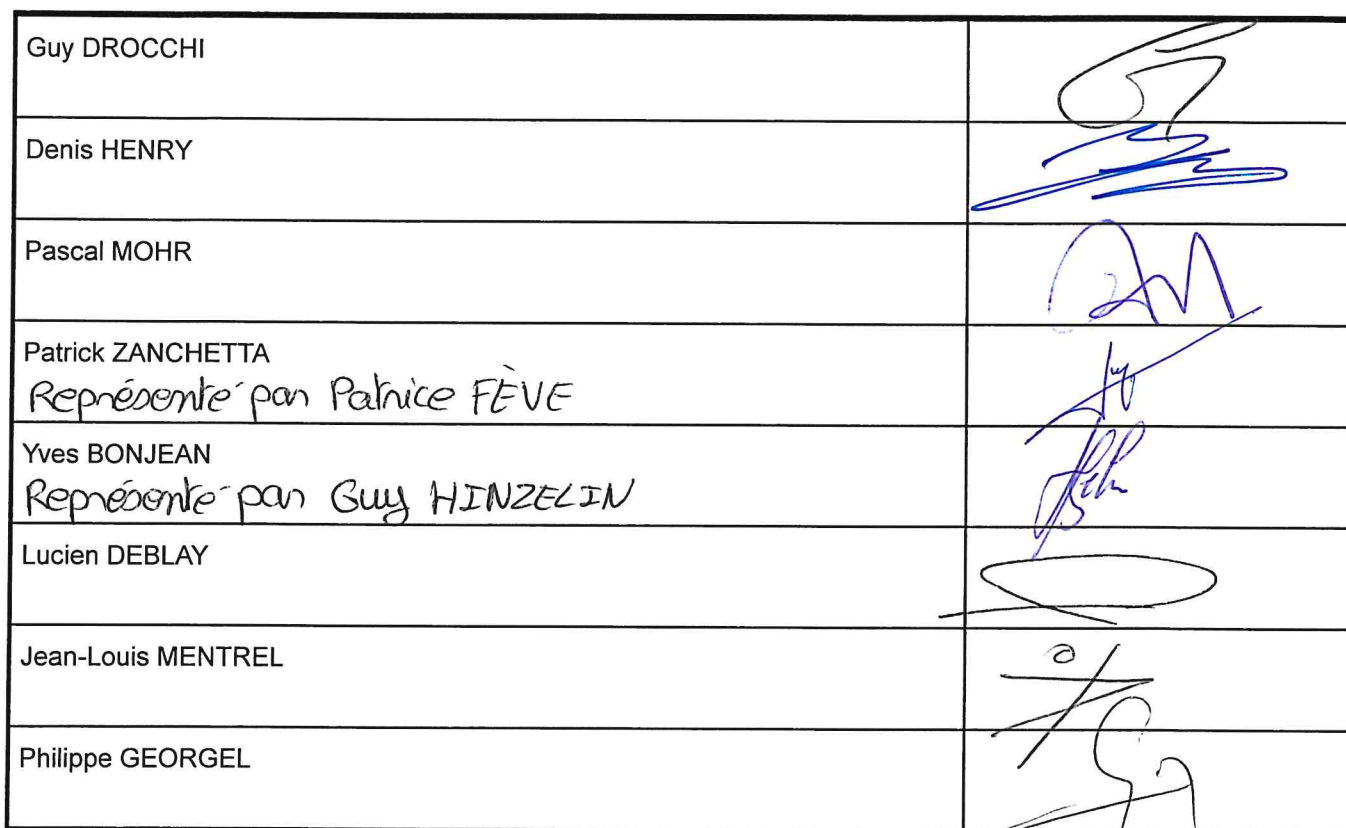 Guy DROCCHI
Denis HENRY
Pascal MOHR
Patrick ZANCHETTA
Représenté par Patrice FÈVE
Yves BONJEAN
Représenté par Guy HINZELIN
Lucien DEBLAY
Jean-Louis MENTREL
Philippe GEORGEL